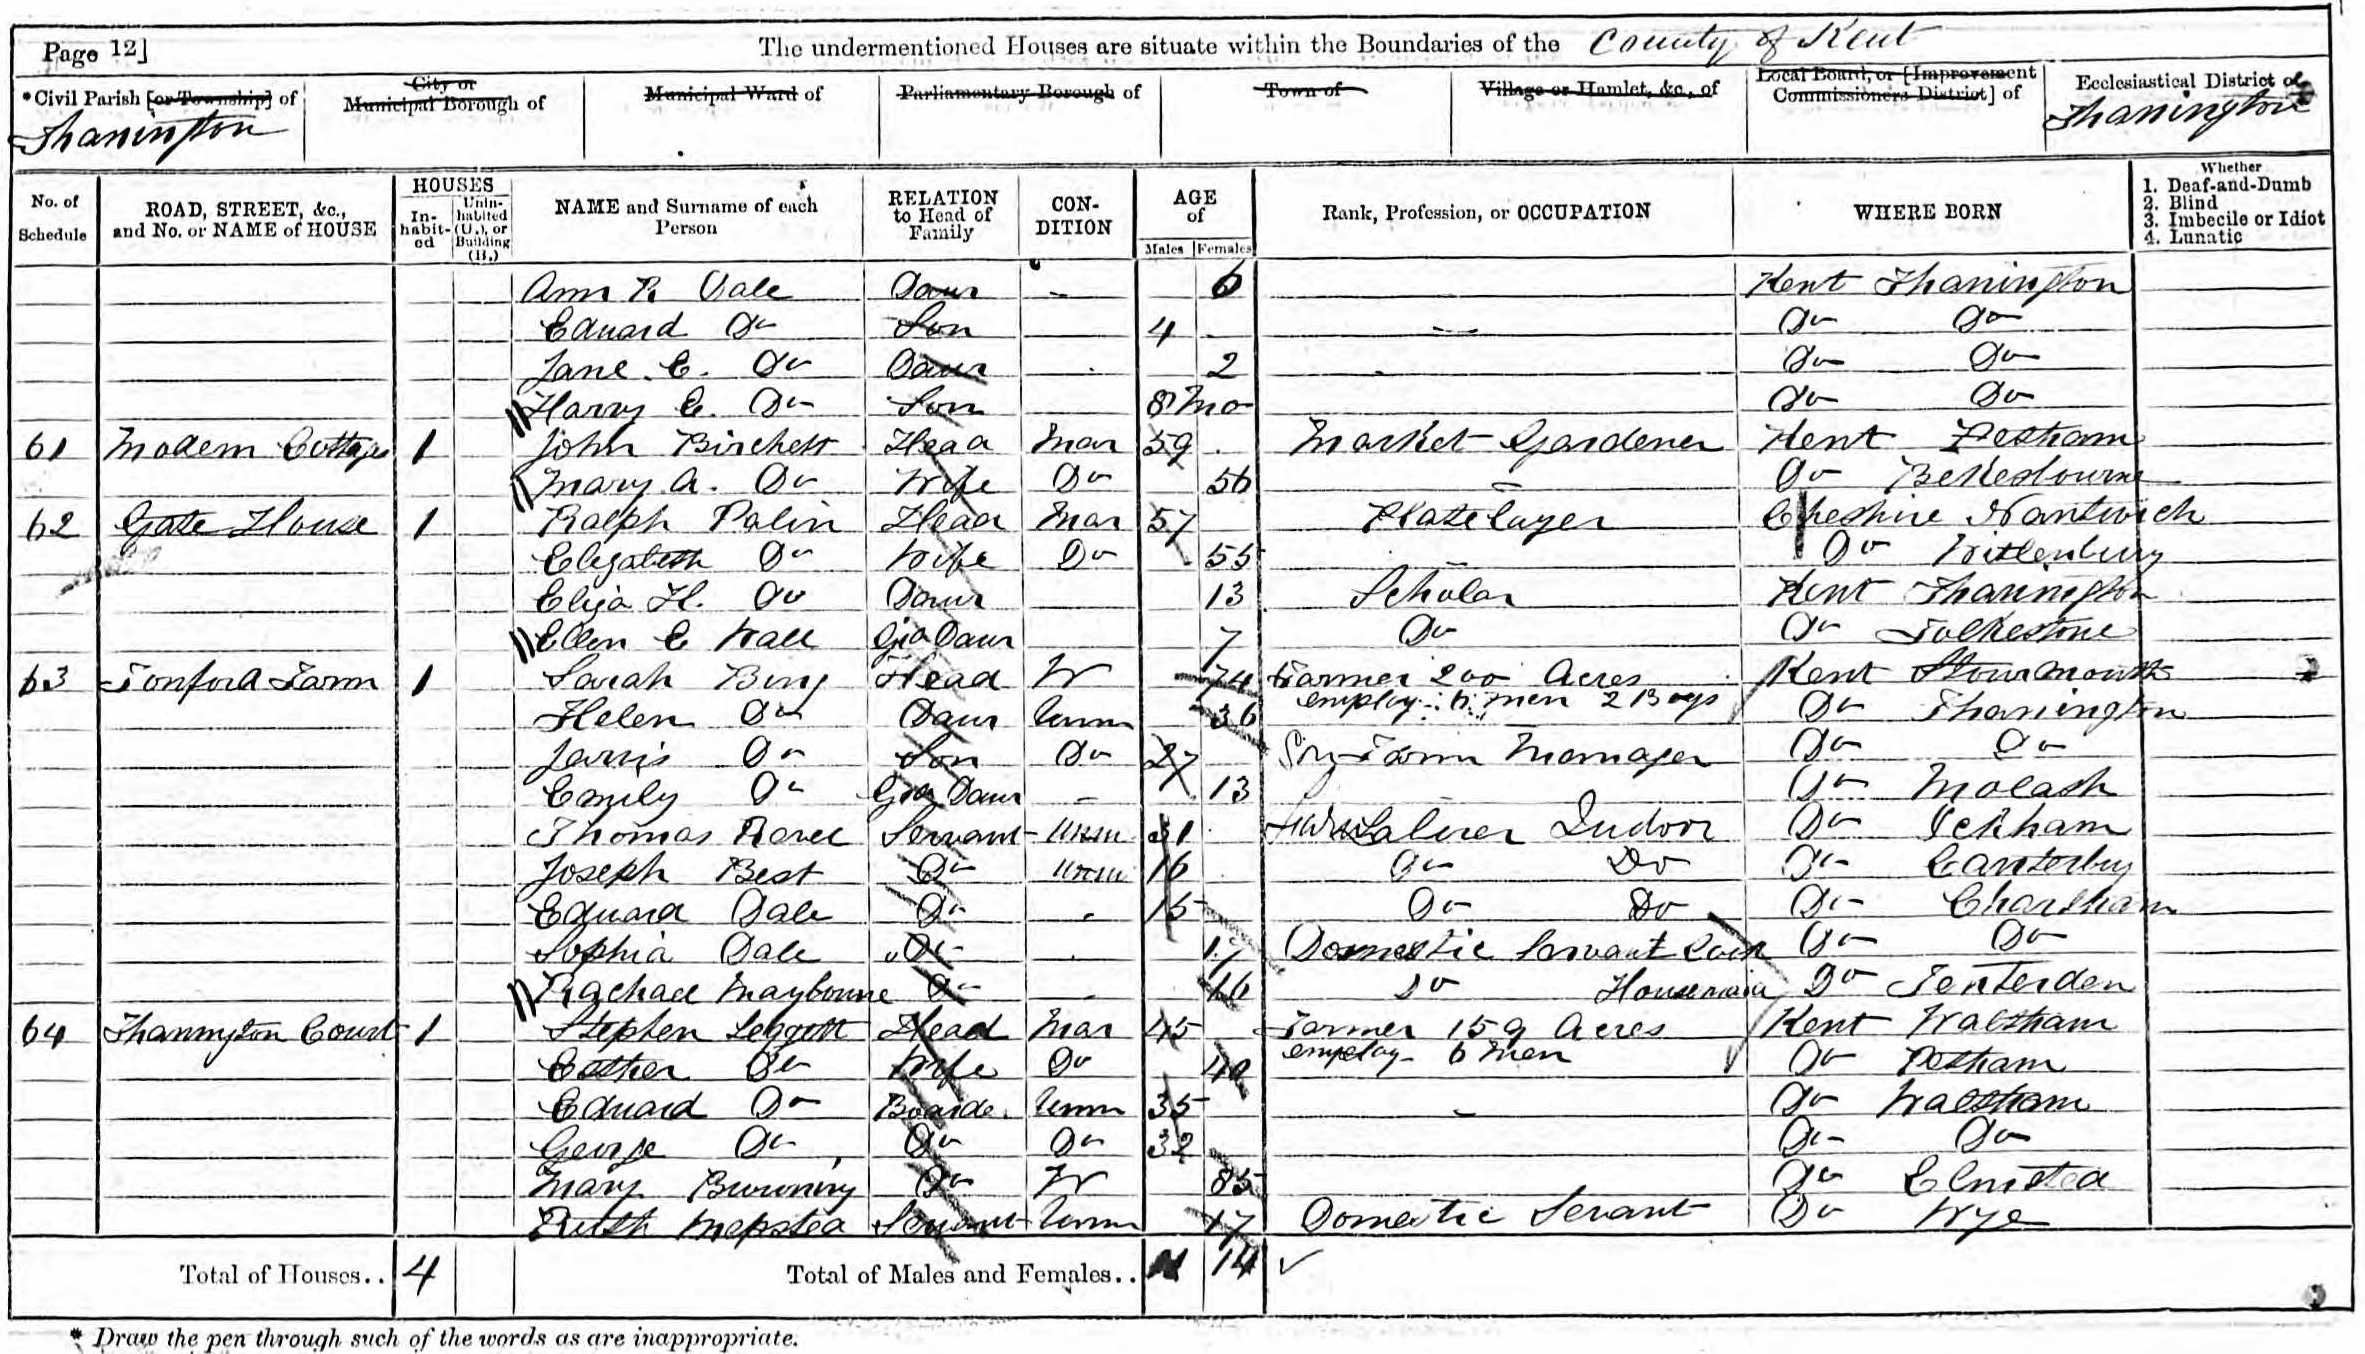 Page 12] The undermentioned Houses are situate within the Boundaries of the County of Kent
*Civil Parish [or Township] of Thanington City or Municipal Borough of Municipal Ward of Parliamentary Borough of Town of Village or Hamlet, &c., of Local Board, or [Improvement Commissioners District] of Ecclesiastical District of Thanington
No. of Schedule ROAD, STREET, &c., and No. or NAME of HOUSE HOUSES Inhabited Uninhabited (U.), or Building (B.) NAME and Surname of each Person RELATION to Head of Family CONDITION AGE of Males Females Rank, Profession, or OCCUPATION WHERE BORN Whether 1. Deaf-and-Dumb 2. Blind 3. Imbecile or Idiot 4. Lunatic
Ann R Dale Daur - 6 Kent Thanington
Edward Do Son 4 - Do Do
Jane E. Do Daur 2 Do Do
Harry E. Do Son 8 Mo Do Do
61 Modern Cottages 1 John Birchett Head Mar 59 Market Gardener Kent Petham
Mary A. Do Wife Do 56 - Do Bekesbourne
62 Gate House 1 Ralph Palin Head Mar 57 Platelayer Cheshire Nantwich
Elizabeth Do Wife Do 55 - Do
Eliza H. Do Daur 13 Scholar Kent Thanington
Ellen E Wall Gra Daur 7 Do Do Folkestone
63 Tonford Farm 1 Sarah Bing Head W 74 Farmer 200 Acres Kent Stourmouth
employ 6 men 2 Boys
Helen Do Daur Unm 36 Do Thanington
Jarvis Do Son Do 27 Farm Manager Do Do
Emily Do Gra Daur - 13 Do Molash
Thomas Servant Unm 31 Laborer Indoor Do Ickham
Joseph Best Do Unm 16 Do Do Do Canterbury
Edward Dale Do 15 Do Do Do Chartham
Sophia Dale Do 17 Domestic Servant Cook Do Do
Rachael Maybourne Do 16 Do Housemaid Do Tenterden
64 Thanington Court 1 Stephen Leggett Head Mar 45 Farmer 159 Acres Kent Waltham
employ 6 Men
Esther Do Wife Do 40 Do Petham
Edward Do Boarder Unm 35 - Do Waltham
George Do Do Do 32 Do Do
Mary Do W 85 Do Elmsted
Ruth Mepsted Servant Unm 17 Domestic Servant Do Wye
Total of Houses.. 4 Total of Males and Females.. 11 14
* Draw the pen through such of the words as are inappropriate.